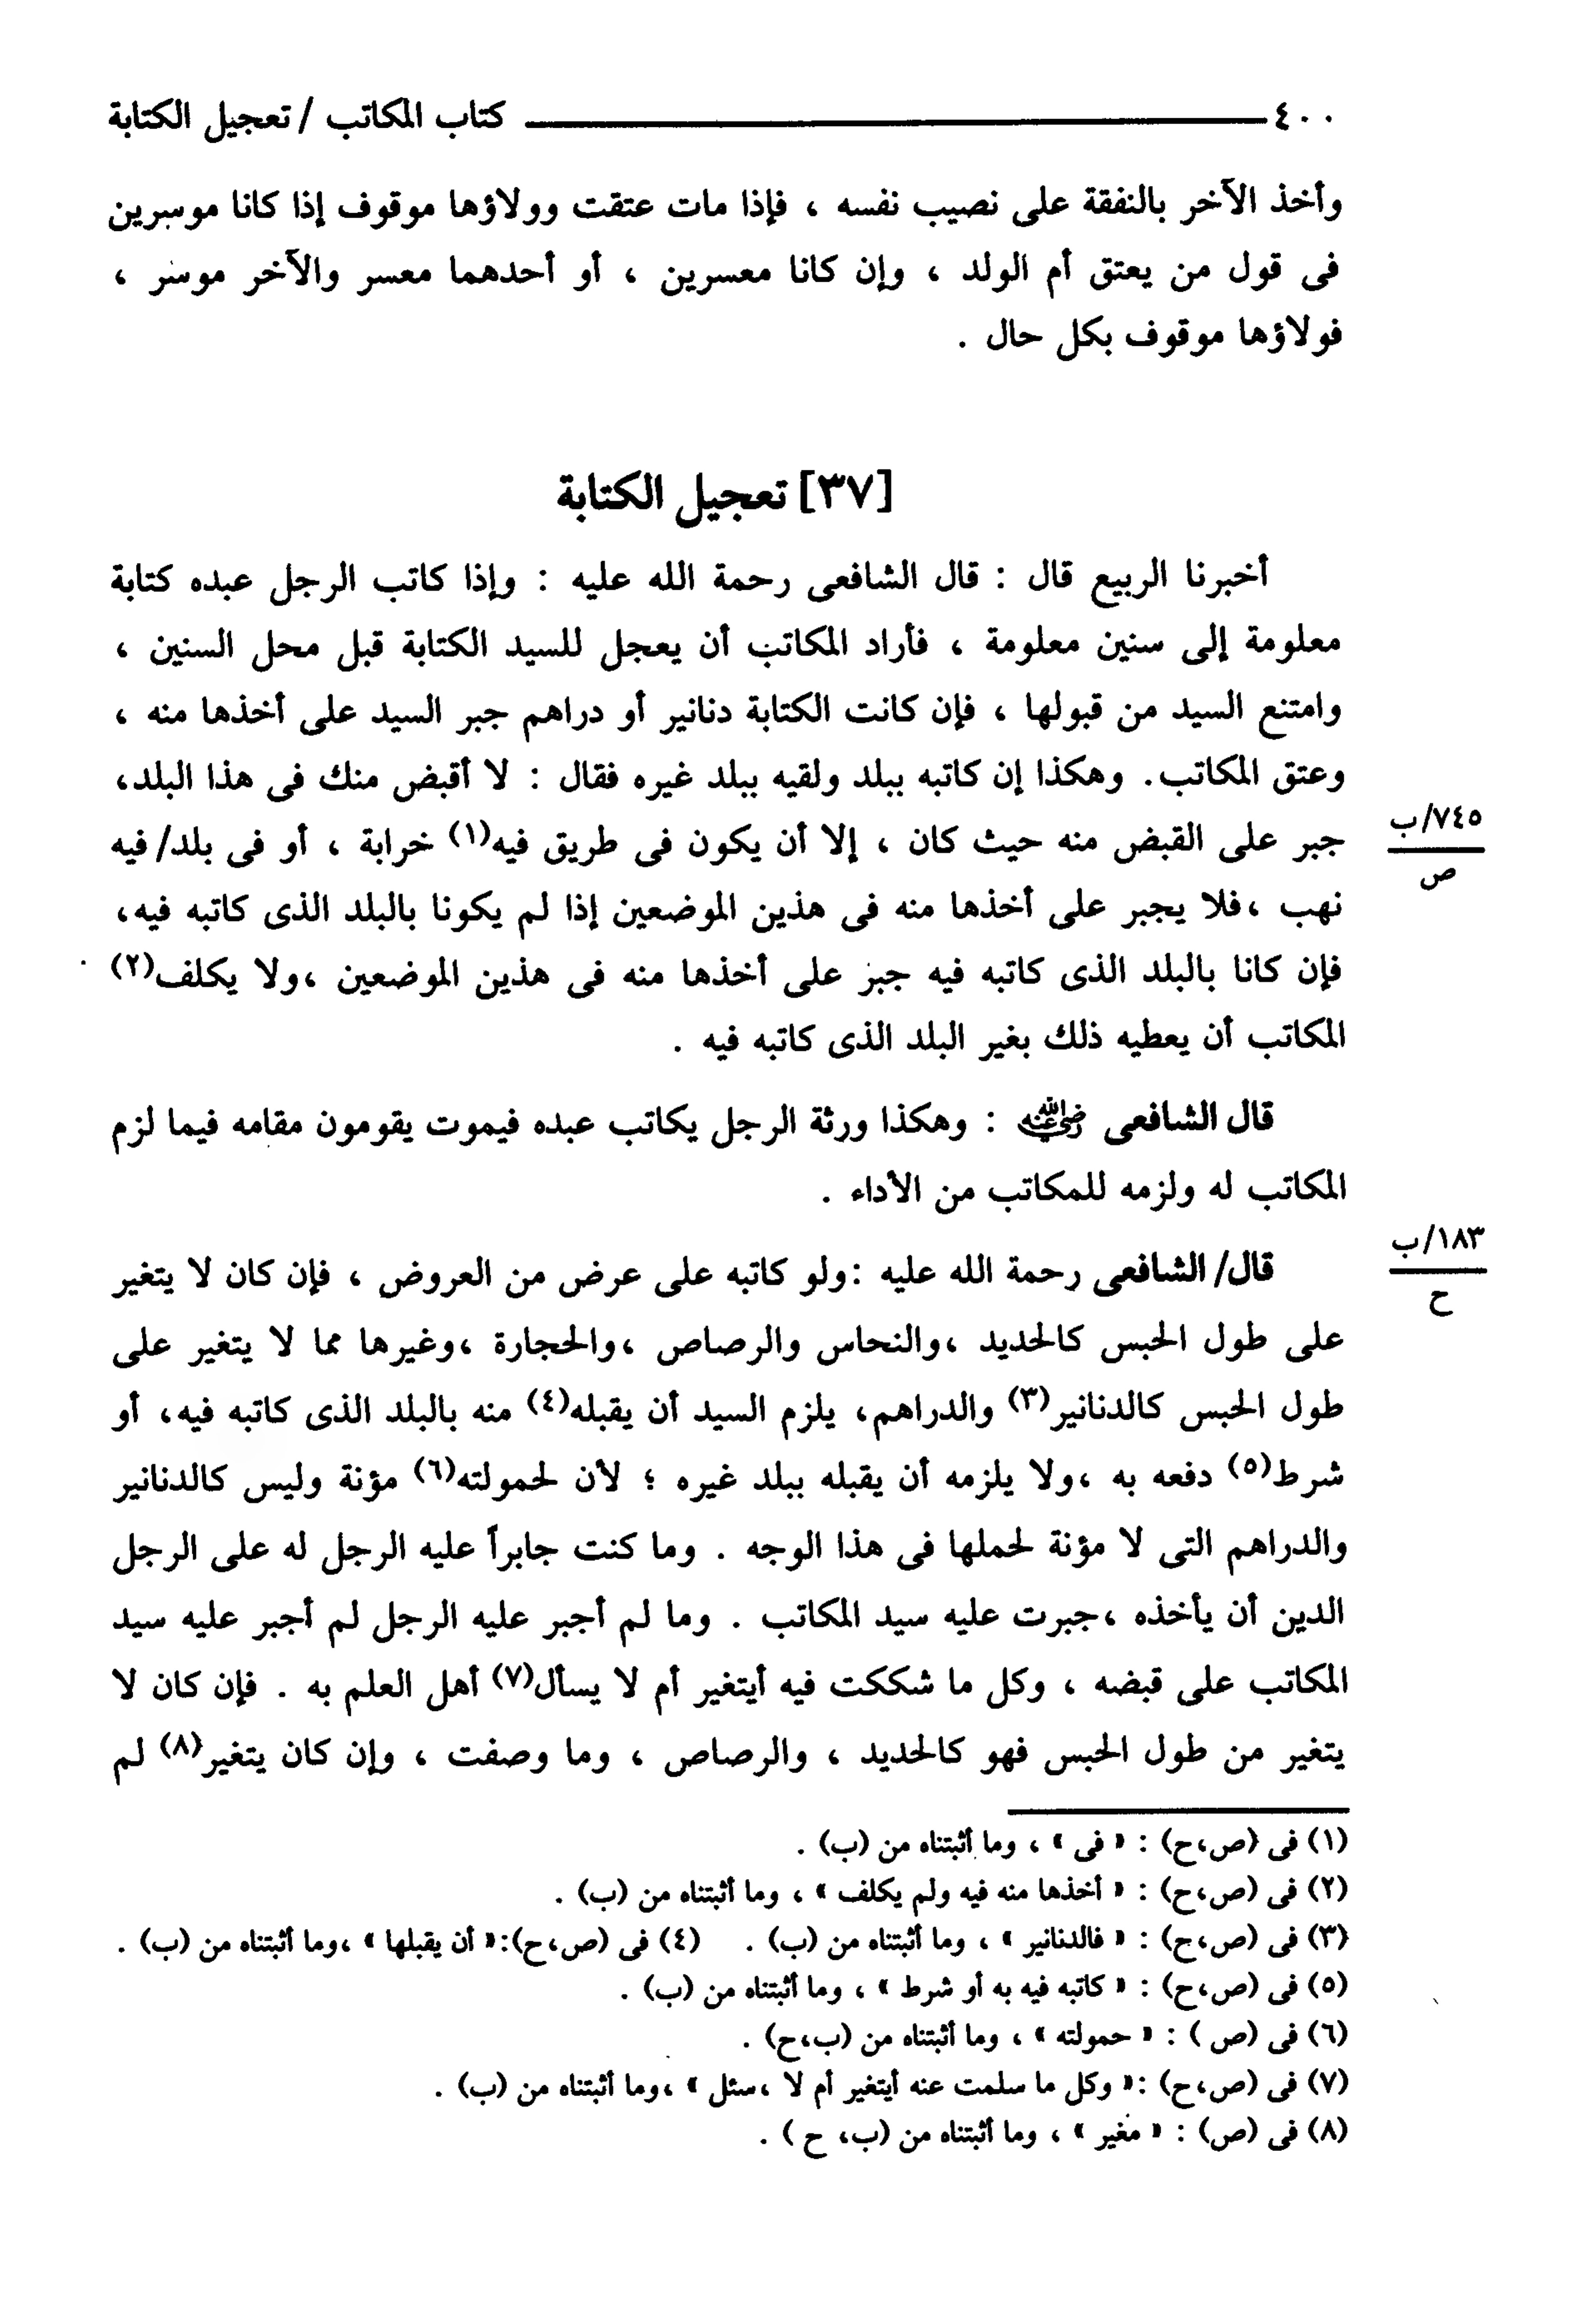 ٤٠٠ ـــــــــــ كتاب المكاتب / تعجيل الكتابة
وأخذ الآخر بالنفقة على نصيب نفسه ، فإذا مات عتقت وولاؤها موقوف إذا كانا موسرين
فى قول من يعتق أم الولد ، وإن كانا معسرين ، أو أحدهما معسر والآخر موسر ،
فولاؤها موقوف بكل حال .
[٣٧] تعجيل الكتابة
أخبرنا الربيع قال : قال الشافعى رحمة الله عليه : وإذا كاتب الرجل عبده كتابة
معلومة إلى سنين معلومة ، فأراد المكاتب أن يعجل للسيد الكتابة قبل محل السنين ،
وامتنع السيد من قبولها ، فإن كانت الكتابة دنانير أو دراهم جبر السيد على أخذها منه ،
وعتق المكاتب. وهكذا إن كاتبه ببلد ولقيه ببلد غيره فقال : لا أقبض منك فى هذا البلد،
جبر على القبض منه حيث كان ، إلا أن يكون فى طريق فيه(١) خرابة ، أو فى بلد/ فيه
٧٤٥/ب
ص
نهب ،فلا يجبر على أخذها منه فى هذين الموضعين إذا لم يكونا بالبلد الذى كاتبه فيه،
فإن كانا بالبلد الذى كاتبه فيه جبر على أخذها منه فى هذين الموضعين ،ولا يكلف(٢)
المكاتب أن يعطيه ذلك بغير البلد الذى كاتبه فيه .
قال الشافعى رضي الله عنه : وهكذا ورثة الرجل يكاتب عبده فيموت يقومون مقامه فيما لزم
المكاتب له ولزمه للمكاتب من الأداء .
قال/ الشافعى رحمة الله عليه :ولو كاتبه على عرض من العروض ، فإن كان لا يتغير
١٨٣/ب
ح
على طول الحبس كالحديد ،والنحاس والرصاص ،والحجارة ،وغيرها مما لا يتغير على
طول الحبس كالدنانير(٣) والدراهم، يلزم السيد أن يقبله(٤) منه بالبلد الذى كاتبه فيه، أو
شرط(٥) دفعه به ،ولا يلزمه أن يقبله ببلد غيره ؛ لأن لحمولته(٦) مؤنة وليس كالدنانير
والدراهم التى لا مؤنة لحملها فى هذا الوجه . وما كنت جابراً عليه الرجل له على الرجل
الدين أن يأخذه ،جبرت عليه سيد المكاتب . وما لم أجبر عليه الرجل لم أجبر عليه سيد
المكاتب على قبضه ، وكل ما شككت فيه أيتغير أم لا يسأل(٧) أهل العلم به . فإن كان لا
يتغير من طول الحبس فهو كالحديد ، والرصاص ، وما وصفت ، وإن كان يتغير(٨) لم
(١) فى (ص،ح) : « فى » ، وما أثبتناه من (ب) .
(٢) فى (ص،ح) : « أخذها منه فيه ولم يكلف » ، وما أثبتناه من (ب) .
(٣) فى (ص،ح) : « فالدنانير » ، وما أثبتناه من (ب) . (٤) فى (ص،ح):« أن يقبلها » ،وما أثبتناه من (ب) .
(٥) فى (ص،ح) : « كاتبه فيه به أو شرط » ، وما أثبتناه من (ب) .
(٦) فى (ص ) : « حمولته » ، وما أثبتناه من (ب،ح) .
(٧) فى (ص،ح) :« وكل ما سلمت عنه أيتغير أم لا ،سئل » ،وما أثبتناه من (ب) .
(٨) فى (ص) : « مغير » ، وما أثبتناه من (ب، ح ) .